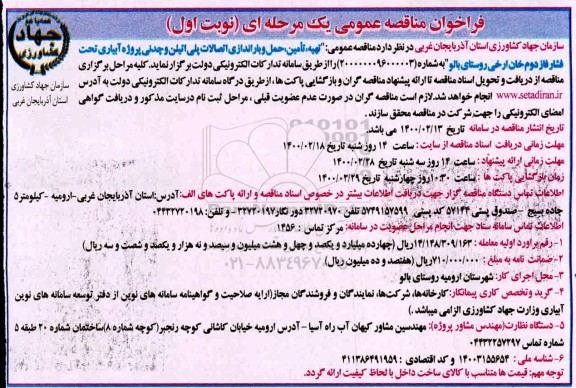 فراخوان مناقصه عمومی یک مرحله ای (نوبت اول)
جهاد کشاورزی
سازمان جهاد کشاورزی
استان آذربایجان غربی
سازمان جهاد کشاورزی استان آذربایجان غربی در نظر دارد مناقصه عمومی: "تهیه، تأمین، حمل و باراندازی اتصالات پلی اتیلن و چدنی پروژه آبیاری تحت
فشار فاز دوم خان ارخی روستای بالو" به شماره (2000000960000003) را از طریق سامانه تدارکات الکترونیکی دولت برگزار نماید. کلیه مراحل برگزاری
مناقصه از دریافت و تحویل اسناد مناقصه تا ارائه پیشنهاد مناقصه گران و بازگشایی پاکت ها، از طریق درگاه سامانه تدارکات الکترونیکی دولت به آدرس
www.setadiran.ir انجام خواهد شد. لازم است مناقصه گران در صورت عدم عضویت قبلی، مراحل ثبت نام در سایت مذکور و دریافت گواهی
امضای الکترونیکی را جهت شرکت در مناقصه محقق سازند.
تاریخ انتشار مناقصه در سامانه تاریخ ۱۴۰۰/۰۲/۱۳ می باشد.
مهلت زمانی دریافت اسناد مناقصه از سایت: ساعت ۱۴ روز شنبه تاریخ ۱۴۰۰/۰۲/۱۸
مهلت زمانی ارائه پیشنهاد: ساعت ۱۴ روز سه شنبه تاریخ ۱۴۰۰/۰۲/۲۸
زمان بازگشایی پاکت ها: ساعت ۱۰:۳۰ روز چهارشنبه تاریخ ۱۴۰۰/۰۲/۲۹
اطلاعات تماس دستگاه مناقصه گزار جهت دریافت اطلاعات بیشتر در خصوص اسناد مناقصه و ارائه پاکت های الف: آدرس: استان آذربایجان غربی-ارومیه-کیلومتر ۵
جاده بسیج - صندوق پستی ۵۷۱۴۴ کد پستی ۵۷۴۹۱۵۷۵۹۹ تلفن ۳۲۷۲۰۹۷۰ دورنگار ۳۲۷۲۰۱۹۷ - و تلفن: ۰۴۴۳۲۷۲۰۱۹۸
اطلاعات تماس سامانه ستاد جهت انجام مراحل عضویت در سامانه: مرکز تماس: ۱۴۵۶
۱- رقم برآورد اولیه معامله: ۱۴/۱۴۸/۳۰۹/۱۶۳ ریال (چهارده میلیارد و یکصد و چهل و هشت میلیون و سیصد و نه هزار و یکصد و شصت و سه ریال)
۲- ضمانت نامه به مبلغ: ۷۱۰/۰۰۰/۰۰۰ ریال (هفتصد و ده میلیون ریال)
۳- محل اجرای کار: شهرستان ارومیه روستای بالو
۴- گرید و تخصص کاری پیمانکار: کارخانه ها، شرکت ها، نمایندگان و فروشندگان مجاز (ارایه صلاحیت و گواهینامه سامانه های نوین از دفتر توسعه سامانه های نوین
آبیاری وزارت جهاد کشاورزی الزامی میباشد.)
۵- دستگاه نظارت (مهندس مشاور پروژه): مهندسین مشاور کیهان آب راه آسیا - آدرس ارومیه خیابان کاشانی کوچه رنجبر (کوچه شماره ۸) ساختمان شماره ۲۰ طبقه ۵
شماره تماس ۰۴۴۳۲۲۵۷۲۹۷
۶- شناسه ملی: ۱۴۰۰۳۱۵۵۶۵۴ و کد اقتصادی: ۴۱۱۳۸۶۴۹۱۹۵۹
توجه مهم: قیمت ها متناسب با کالای ساخت داخل با لحاظ کیفیت ارائه گردد.
۰۲۱-۸۸۳۴۹۶۷۰-۵